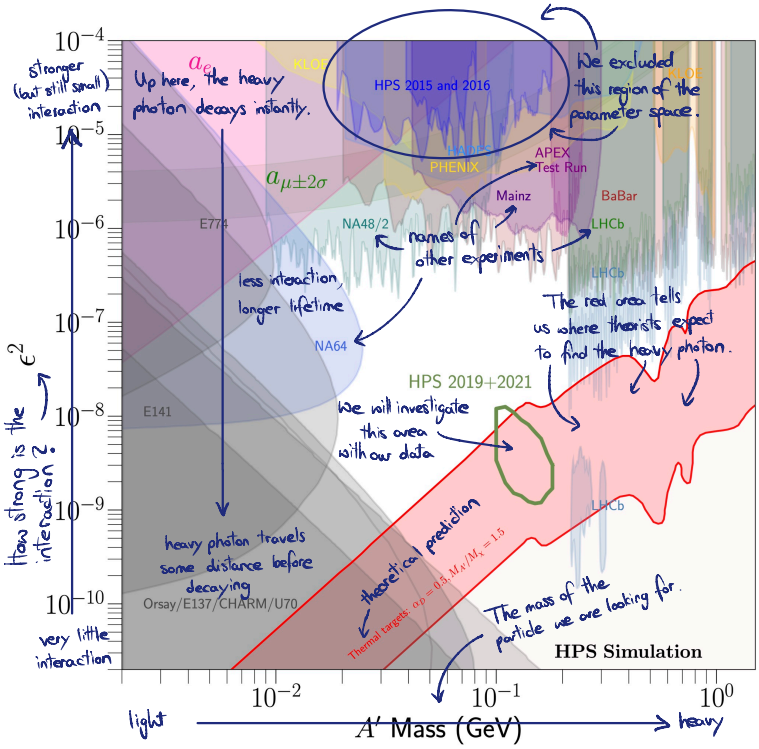 10⁻⁴
stronger
(but still small)
interaction
10⁻⁵
10⁻⁶
10⁻⁷
10⁻⁸
10⁻⁹
10⁻¹⁰
very little
interaction
ϵ²
How strong is the
interaction?
a_e
KLOE
Up here, the heavy
photon decays instantly.
HPS 2015 and 2016
We excluded
this region of the
parameter space.
KLOE
HADES
PHENIX
APEX
Test Run
a_μ±2σ
Mainz
BaBar
E774
NA48/2
LHCb
names of
other experiments
LHCb
less interaction,
longer lifetime
The red area tells
us where theorists expect
to find the heavy photon.
NA64
HPS 2019+2021
E141
We will investigate
this area
with our data
LHCb
heavy photon travels
some distance before
decaying
theoretical prediction
Thermal targets: α_D = 0.5, M_A'/M_χ = 1.5
Orsay/E137/CHARM/U70
The mass of the
particle we are looking for.
HPS Simulation
10⁻²
10⁻¹
10⁰
light
A′ Mass (GeV)
heavy